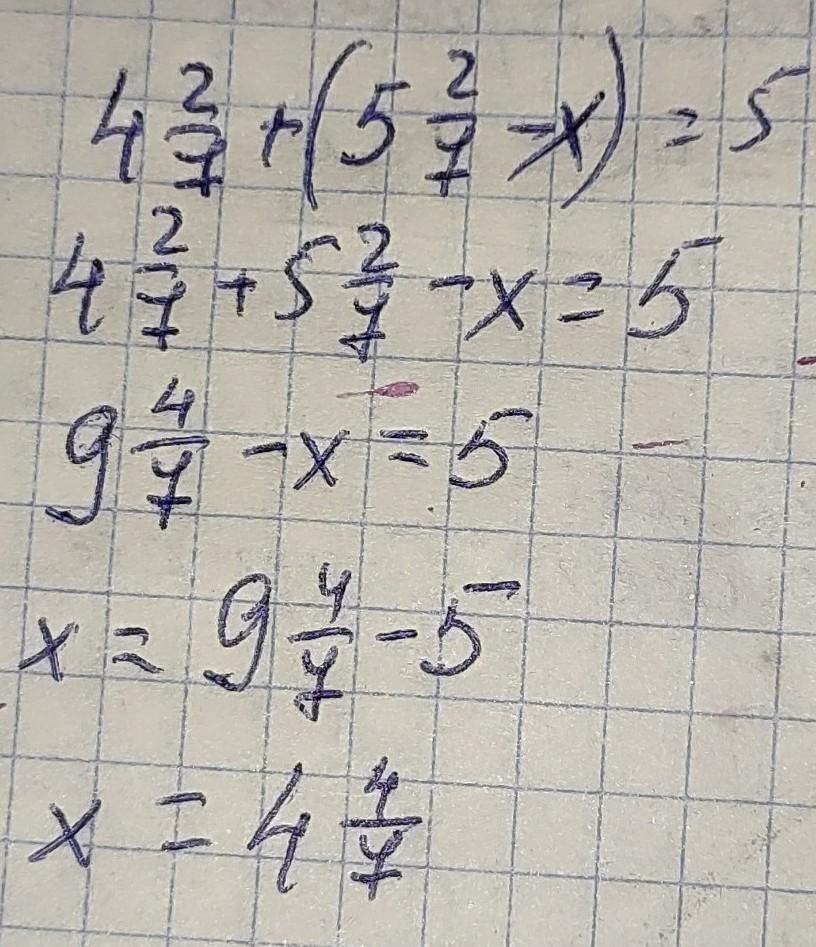 4 2/7 + (5 2/7 - x) = 5
4 2/7 + 5 2/7 - x = 5
9 4/7 - x = 5
x = 9 4/7 - 5
x = 4 4/7